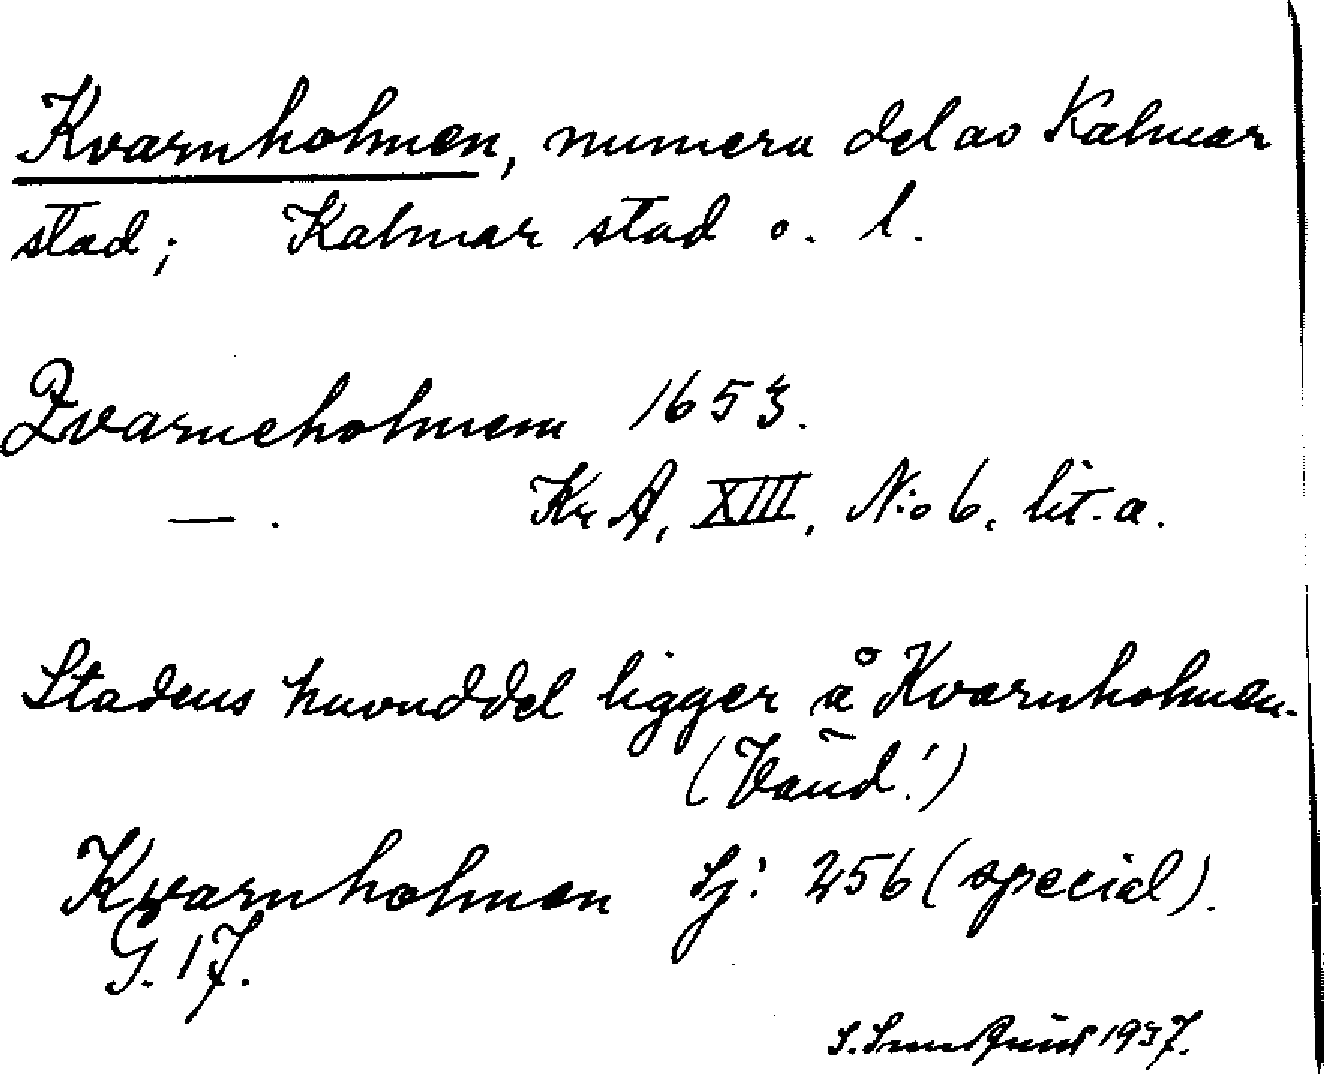 Kvarnholmen, numera del av Kalmar
stad; Kalmar stad o. l.
Qvarneholmem 1653.
— . KrA, XIII, N:o 6, lit. a.
Stadens huvuddel ligger å Kvarnholmen.
(Vänd!)
Kvarnholmen Sj: 256 (special).
G. 17.
S. 1937.